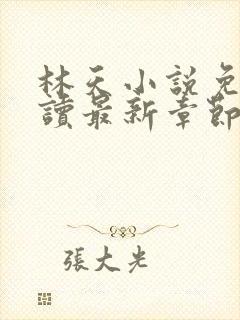 林天小說免
讀最新章節
張大光